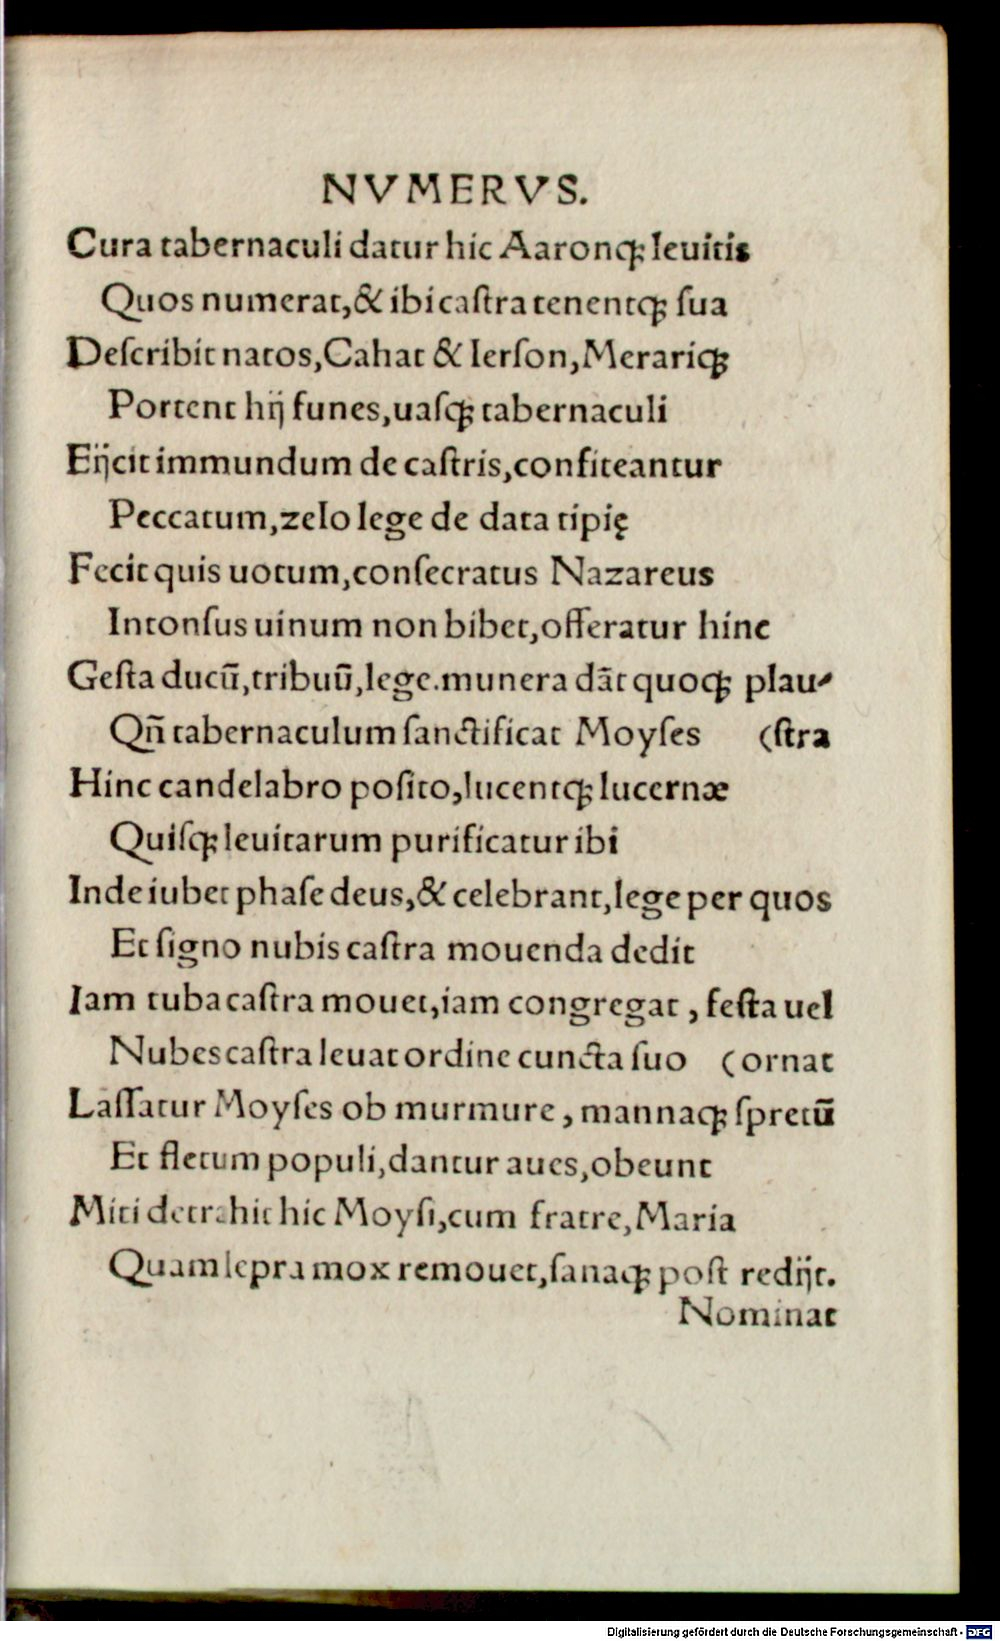 NVMERVS.
Cura tabernaculi datur hic Aaronq; leuitis
Quos numerat,& ibi castra tenentq; sua
Deſcribit natos,Cahat & Ierſon,Merariq;
Portent hij funes,uaſq; tabernaculi
Eijcit immundum de caſtris,confiteantur
Peccatum,zelo lege de data tipię
Fecit quis uotum,conſecratus Nazareus
Intonſus uinum non bibet,offeratur hinc
Geſta ducū,tribuū,lege.munera dāt quoq; plau-
Qñ tabernaculum ſanctificat Moyſes (ſtra
Hinc candelabro poſito,lucentq; lucernæ
Quiſq; leuitarum purificatur ibi
Inde iubet phaſe deus,& celebrant,lege per quos
Et ſigno nubis caſtra mouenda dedit
Iam tuba caſtra mouet,iam congregat , feſta uel
Nubes caſtra leuat ordine cuncta ſuo (ornat
Laſſatur Moyſes ob murmure , mannaq; ſpretū
Et fletum populi,dantur aues,obeunt
Miti detrahit hic Moyſi,cum fratre,Maria
Quam lepra mox remouet,ſanaq; poſt redijt.
Nominat
Digitalisierung gefördert durch die Deutsche Forschungsgemeinschaft - DFG